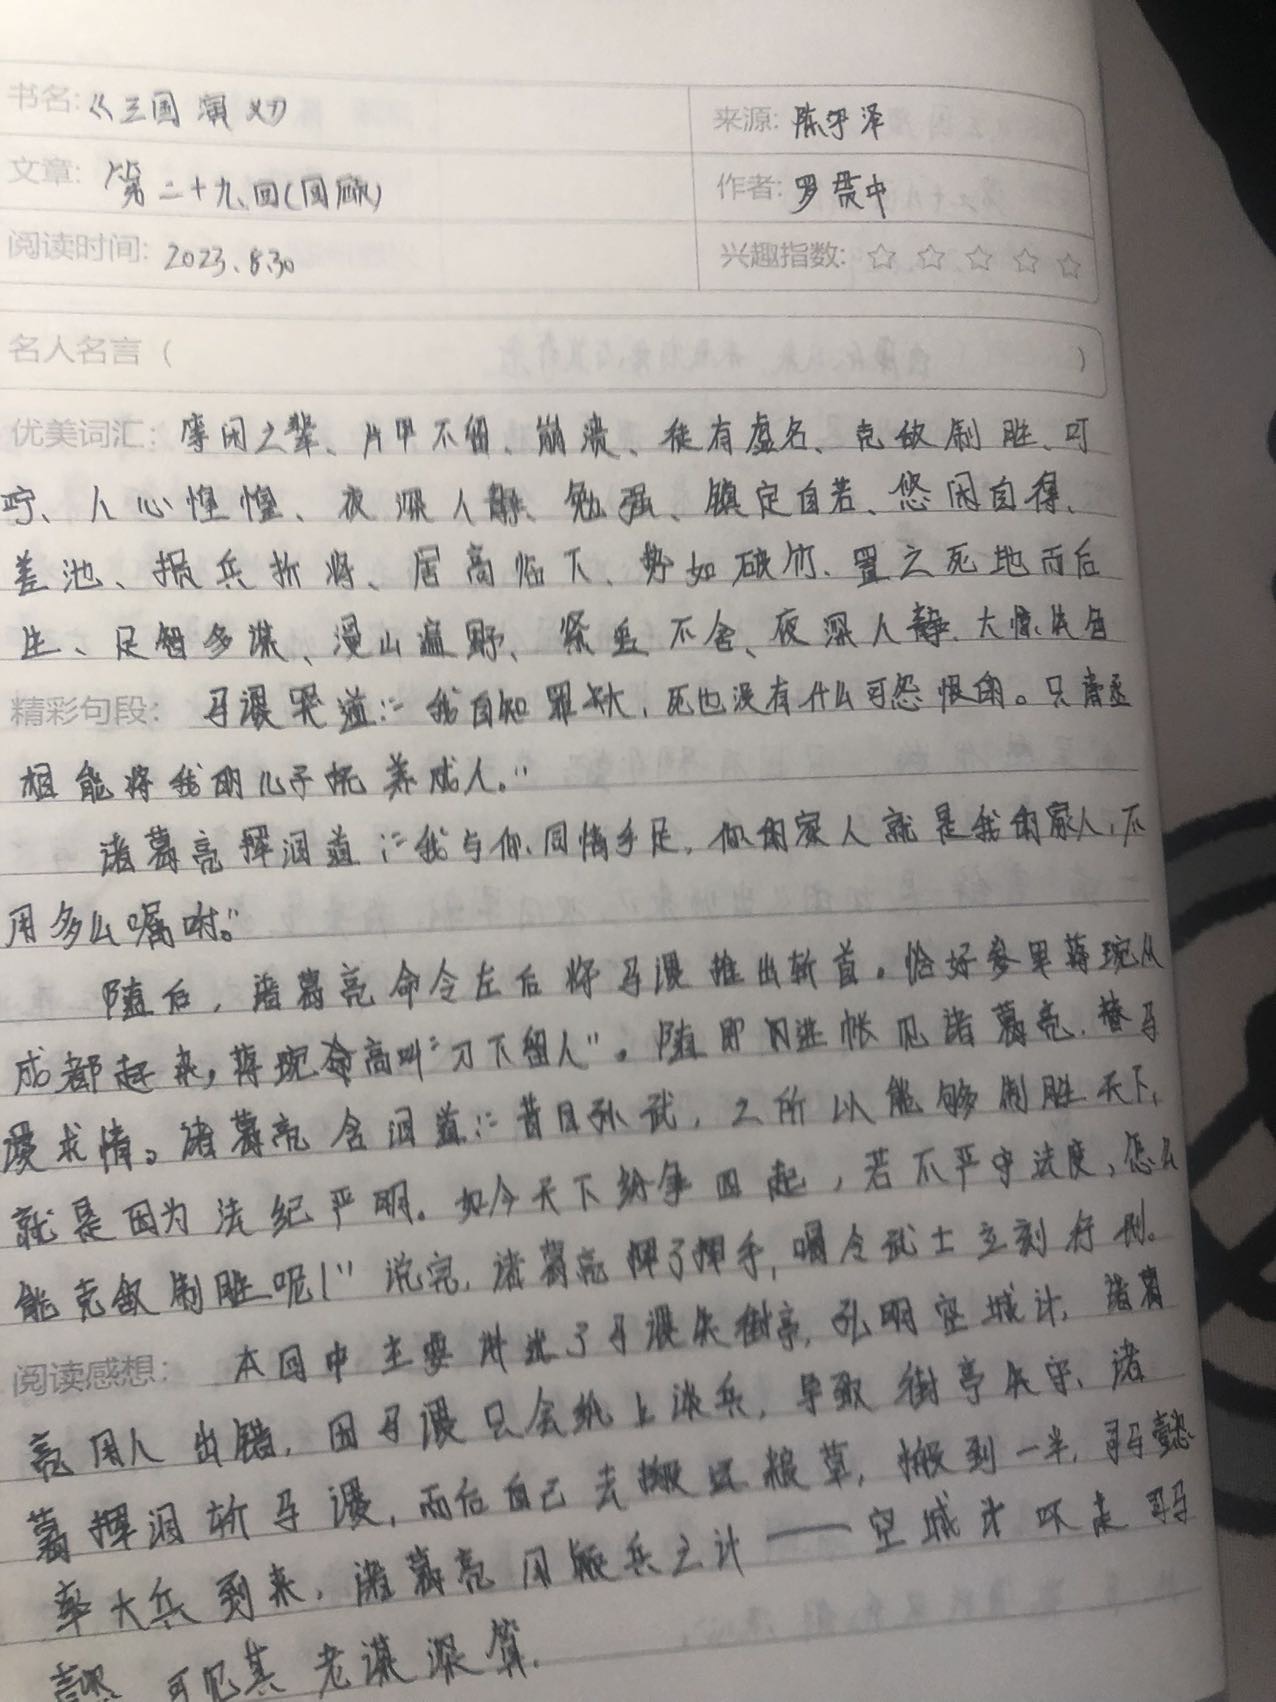 书名:《三国演义》 来源: 陈宇泽
文章: 第二十九回(回顾) 作者: 罗贯中
阅读时间: 2023.8.30 兴趣指数: ☆ ☆ ☆ ☆ ☆
名人名言 ( )
优美词汇: 等闲之辈、片甲不留、崩溃、徒有虚名、克敌制胜、叮
咛、人心惶惶、夜深人静、勉强、镇定自若、悠闲自得、
差池、损兵折将、居高临下、势如破竹、置之死地而后
生、足智多谋、漫山遍野、紧追不舍、夜深人静、大惊失色
精彩句段: 马谡哭道:“我自知罪大,死也没有什么可怨恨的。只肯丞
相能将我的儿子抚养成人。”
诸葛亮挥泪道:“我与你同情手足,你的家人就是我的家人,不
用多么嘱咐。”
随后,诸葛亮命令左右将马谡推出斩首。恰好参军蒋琬从
成都赶来,蒋琬高叫“刀下留人”。随即闪进帐见诸葛亮,替马
谡求情。诸葛亮含泪道:“昔日孙武,之所以能够制胜天下,
就是因为法纪严明。如今天下纷争四起,若不严守法度,怎么
能克敌制胜呢!”说完,诸葛亮挥了挥手,嘱令武士立刻行刑。
阅读感想: 本回中主要讲述了马谡失街亭,孔明空城计,诸葛
亮用人出错,因马谡只会纸上谈兵,导致街亭失守,诸
葛挥泪斩马谡,而后自己去搬运粮草,搬到一半,司马懿
率大兵到来,诸葛亮用疑兵之计——空城计吓走司马
懿,可见其老谋深算.